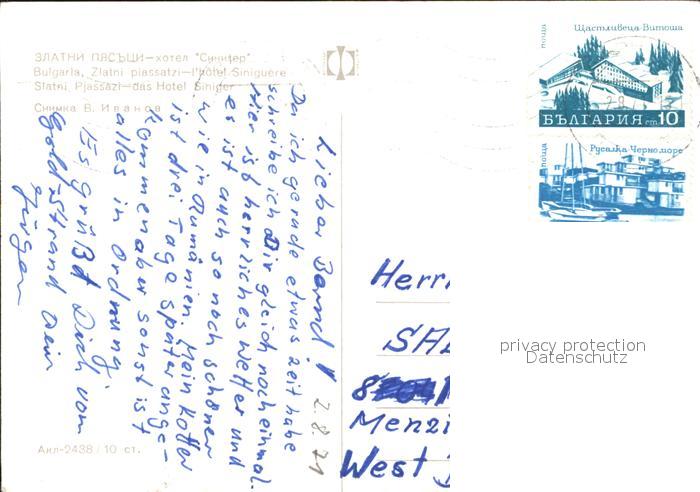 ЗЛАТНИ ПЯСЪЦИ—хотел "Синигер"
Bulgaria, Zlatni piassatzi—l'hôtel Siniguere
Slatni Pjassazi—das Hotel Siniger
Снимка В. Иванов
Lieber Bernd!
2.8.71
Da ich gerade etwas Zeit habe
schreibe ich Dir gleich noch einmal.
Hier ist herrliches Wetter und
es ist auch so noch schöner
wie in Rumänien. Mein Koffer
ist drei Tage später ange-
kommen aber sonst ist
alles in Ordnung.
Es grüßt Dich vom
Gold-Strand Dein
Jürgen
Акл-2438/10 ст.
поща
Щастливеца-Витоша
БЪЛГАРИЯ ст 10
поща
Русалка Черноморе
Herrn
Menzi
West
privacy protection
Datenschutz